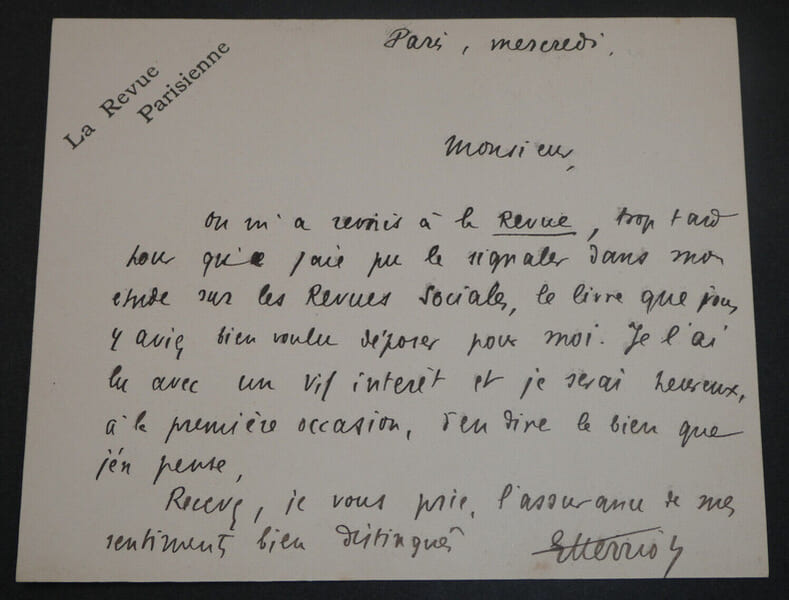 La Revue
Parisienne
Paris, mercredi.
Monsieur,
On m'a remis à la Revue, trop tard
pour que j'aie pu le signaler dans mon
étude sur les Revues Sociales, le livre que vous
y aviez bien voulu déposer pour moi. Je l'ai
lu avec un vif intérêt et je serai heureux,
à la première occasion, d'en dire le bien que
j'en pense.
Recevez, je vous prie, l'assurance de mes
sentiments bien distingués